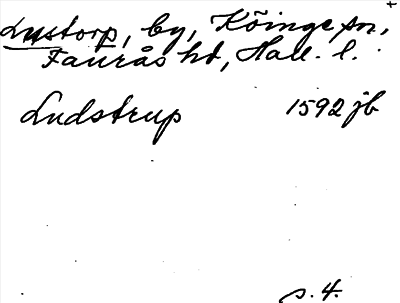 Lustorp, by, Köinge sn,
Faurås hd, Hall. l.
Ludstrup 1592 jb
s. 4.